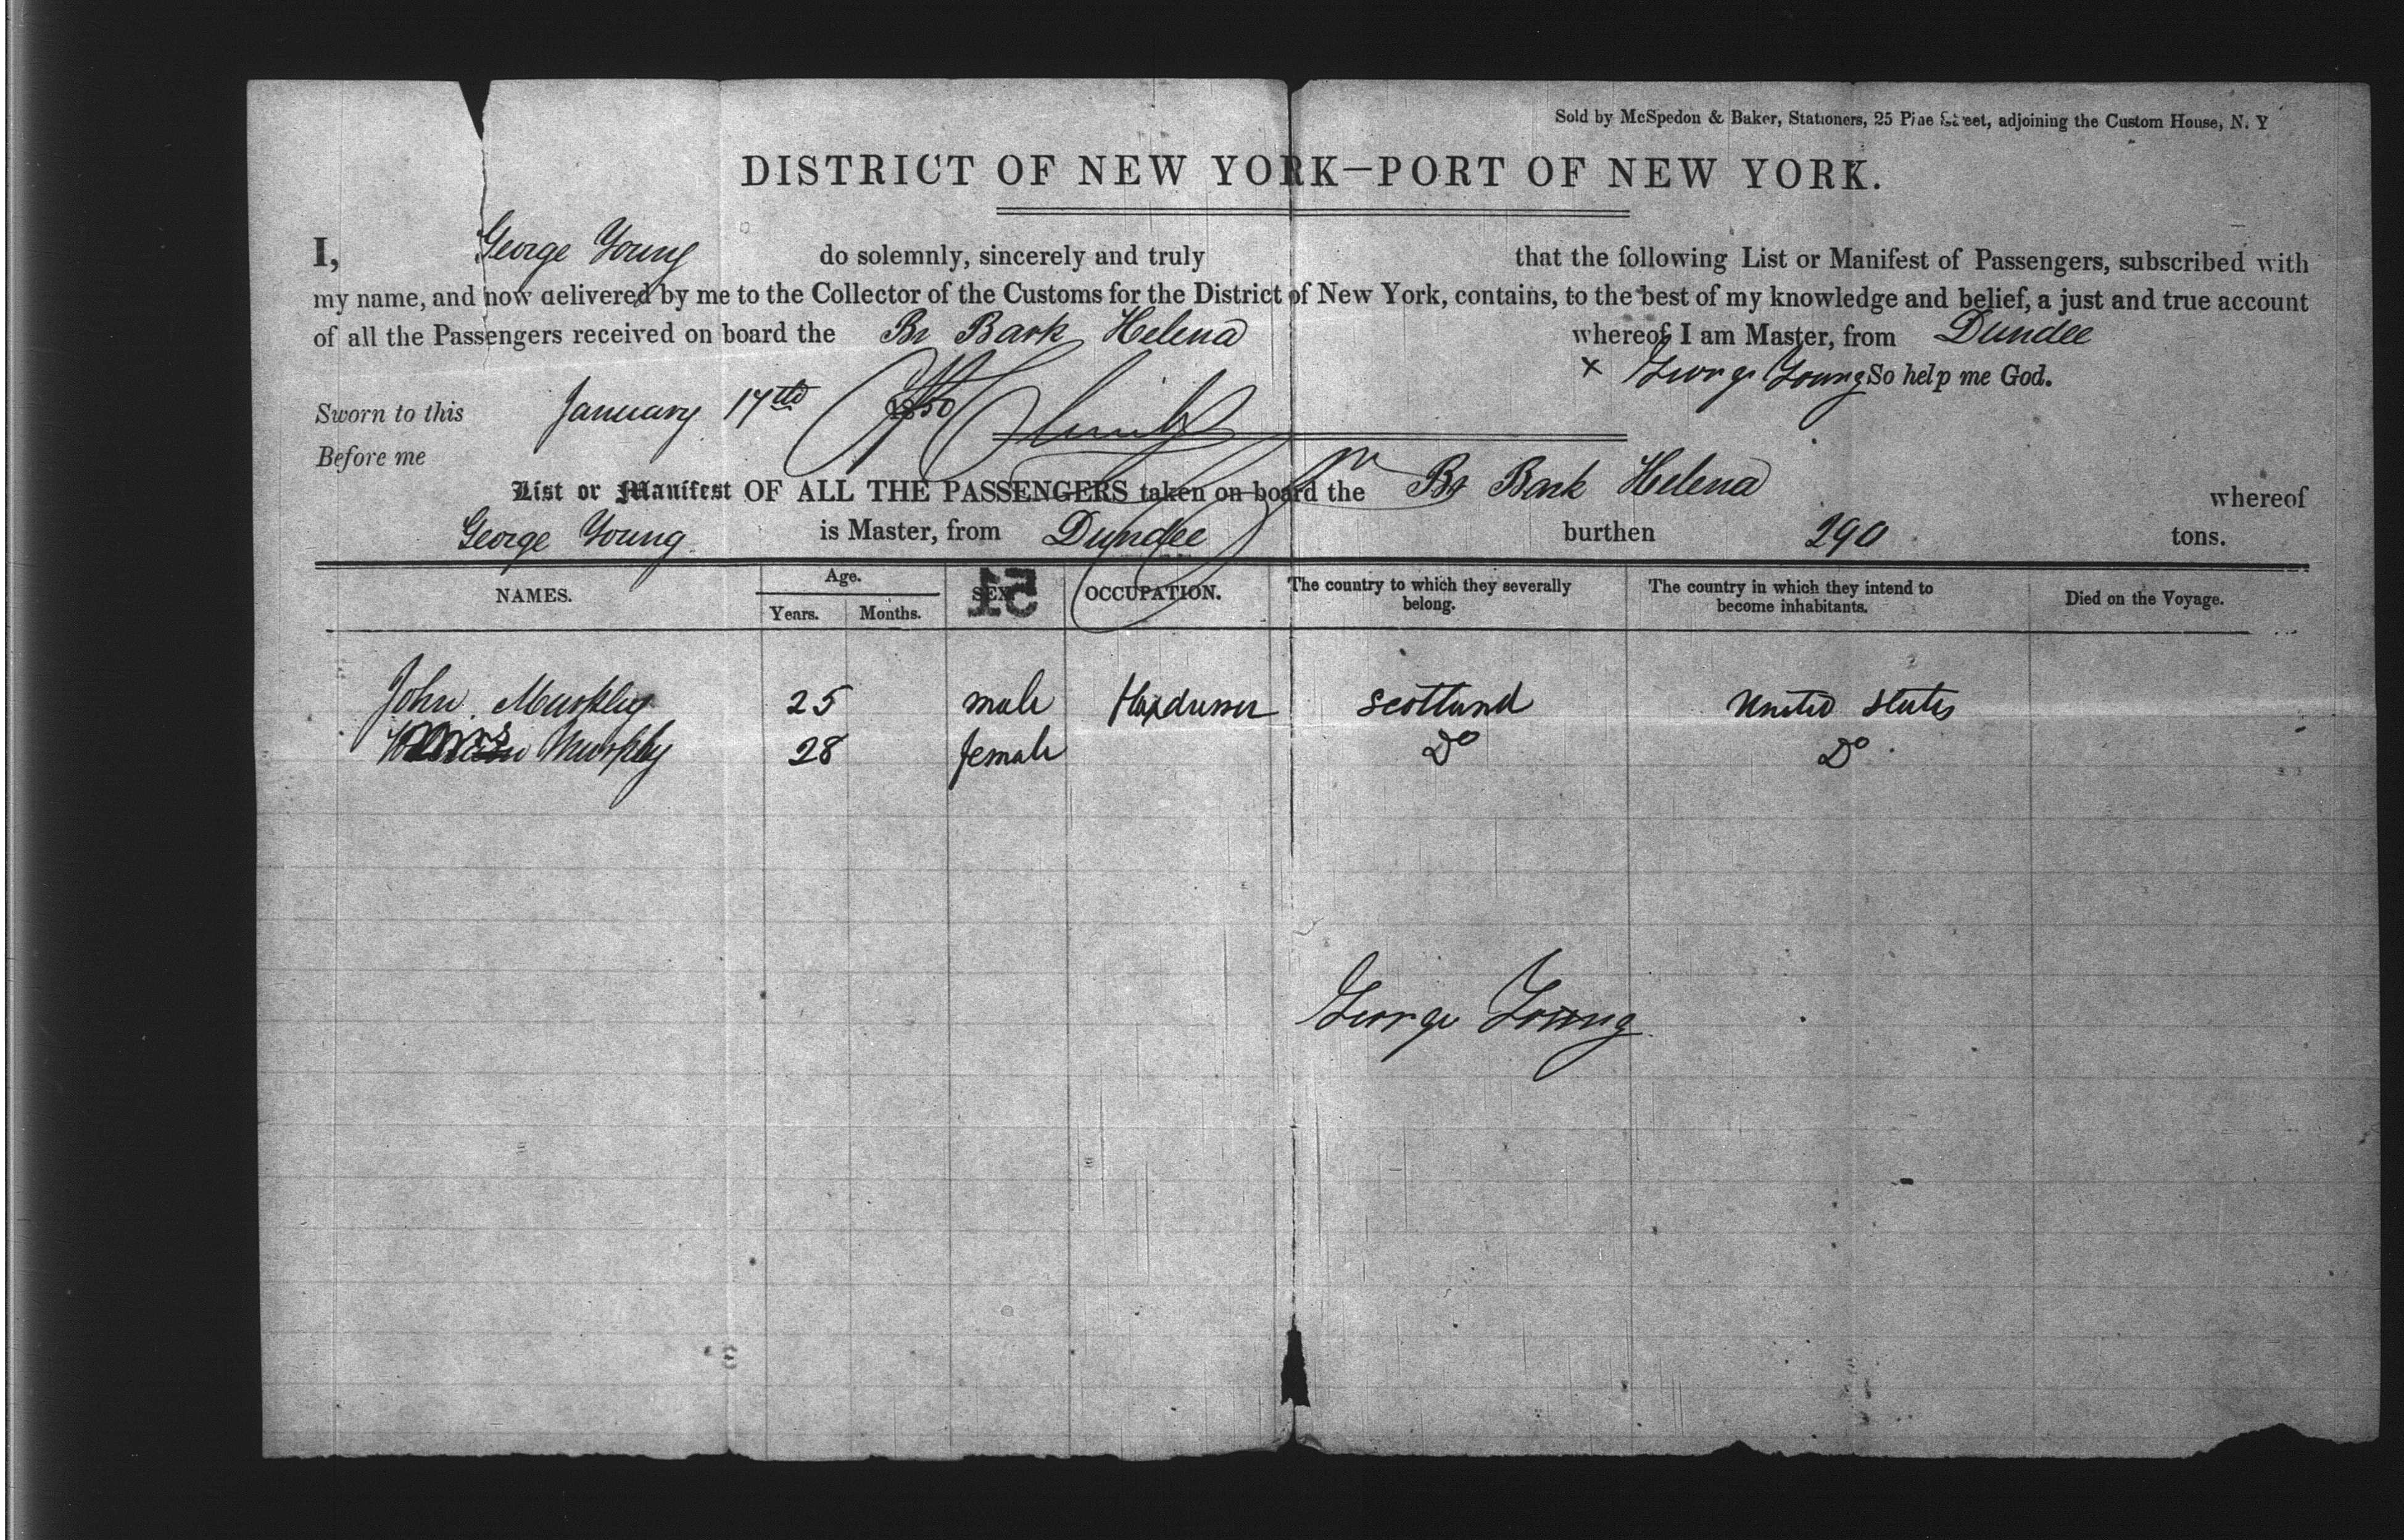 Sold by McSpedon & Baker, Stationers, 25 Pine Street, adjoining the Custom House, N. Y
DISTRICT OF NEW YORK—PORT OF NEW YORK.
I, George Young do solemnly, sincerely and truly that the following List or Manifest of Passengers, subscribed with
my name, and now delivered by me to the Collector of the Customs for the District of New York, contains, to the best of my knowledge and belief, a just and true account
of all the Passengers received on board the Br Bark Helena whereof I am Master, from Dundee
x George Young So help me God.
Sworn to this January 17th 1850
Before me
List or Manifest OF ALL THE PASSENGERS taken on board the Br Bark Helena whereof
George Young is Master, from Dundee burthen 290 tons.
NAMES. Age. Years. Months. SEX. OCCUPATION. The country to which they severally belong. The country in which they intend to become inhabitants. Died on the Voyage.
51
John 25 male Flaxdresser Scotland United States
28 female Do Do
George Young